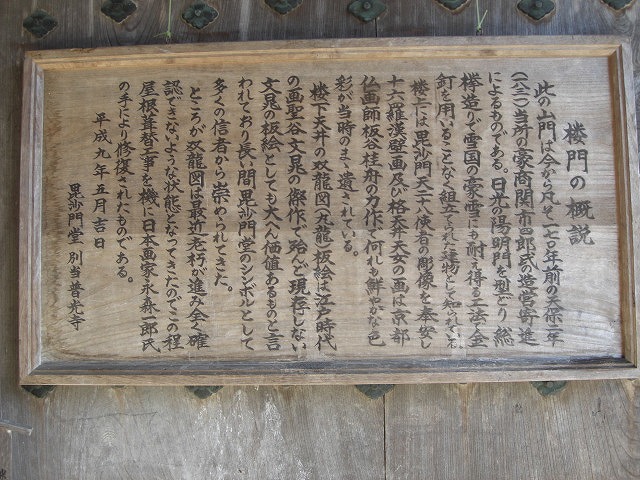 楼門の概説
此の山門は今から凡そ一七〇年前の天保二年
(一八三一)当所の豪商関市四郎氏の造営寄進
によるものである。日光の陽明門を型どり総
欅造りで雪国の豪雪にも耐え得る工法で金
釘を用いることなく組立られた建物として知られている。
楼上には毘沙門天二十八使者の彫像を奉安し
十六羅漢壁画及び格天井天女の画は京都
仏画師板谷桂舟の力作で何れも鮮やかな色
彩が当時のまゝ遺されている。
楼下天井の双龍図(九龍)板絵は江戸時代
の画聖谷文晁の傑作で殆んど現存しない
文晁の板絵としても大へん価値あるものと言
われており長い間毘沙門堂のシンボルとして
多くの信者から崇められてきた。
ところが双龍図は最近老朽が進み全く確
認できないような状態となってきたのでこの程
屋根葺替工事を機に日本画家永森一郎氏
の手により修復されたものである。
平成九年五月吉日
毘沙門堂 別当 普光寺